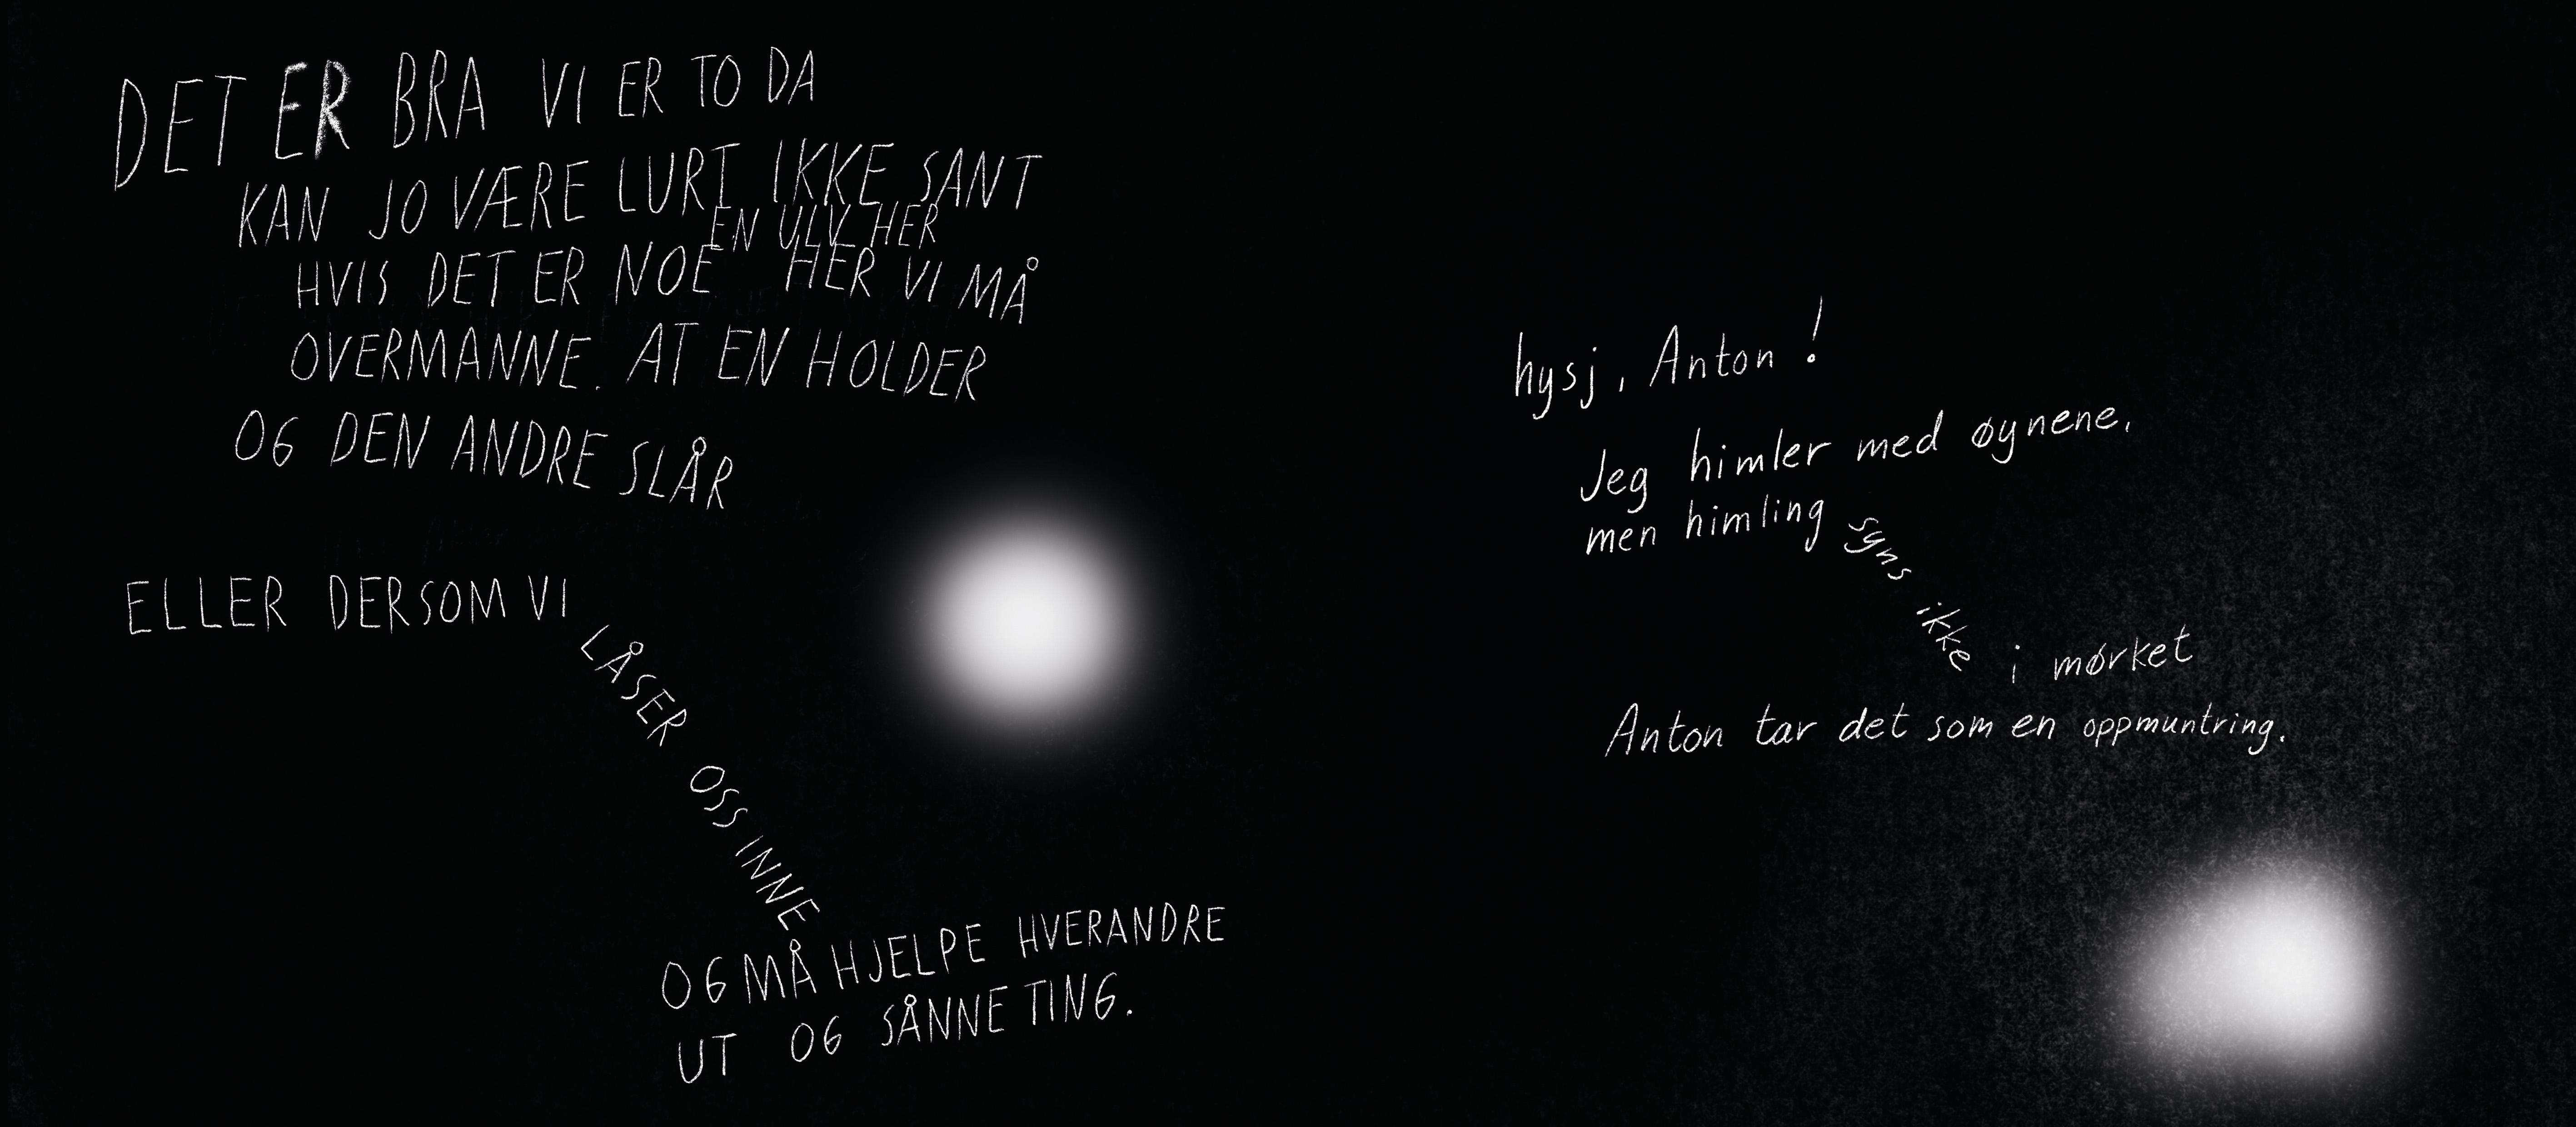 DET ER BRA VI ER TO DA
KAN JO VÆRE LURT IKKE SANT
EN ULV HER
HVIS DET ER NOE HER VI MÅ
OVERMANNE. AT EN HOLDER
OG DEN ANDRE SLÅR
ELLER DERSOM VI
LÅSER OSS INNE
OG MÅ HJELPE HVERANDRE
UT OG SÅNNE TING.
hysj, Anton!
Jeg himler med øynene,
men himling syns ikke i mørket
Anton tar det som en oppmuntring.